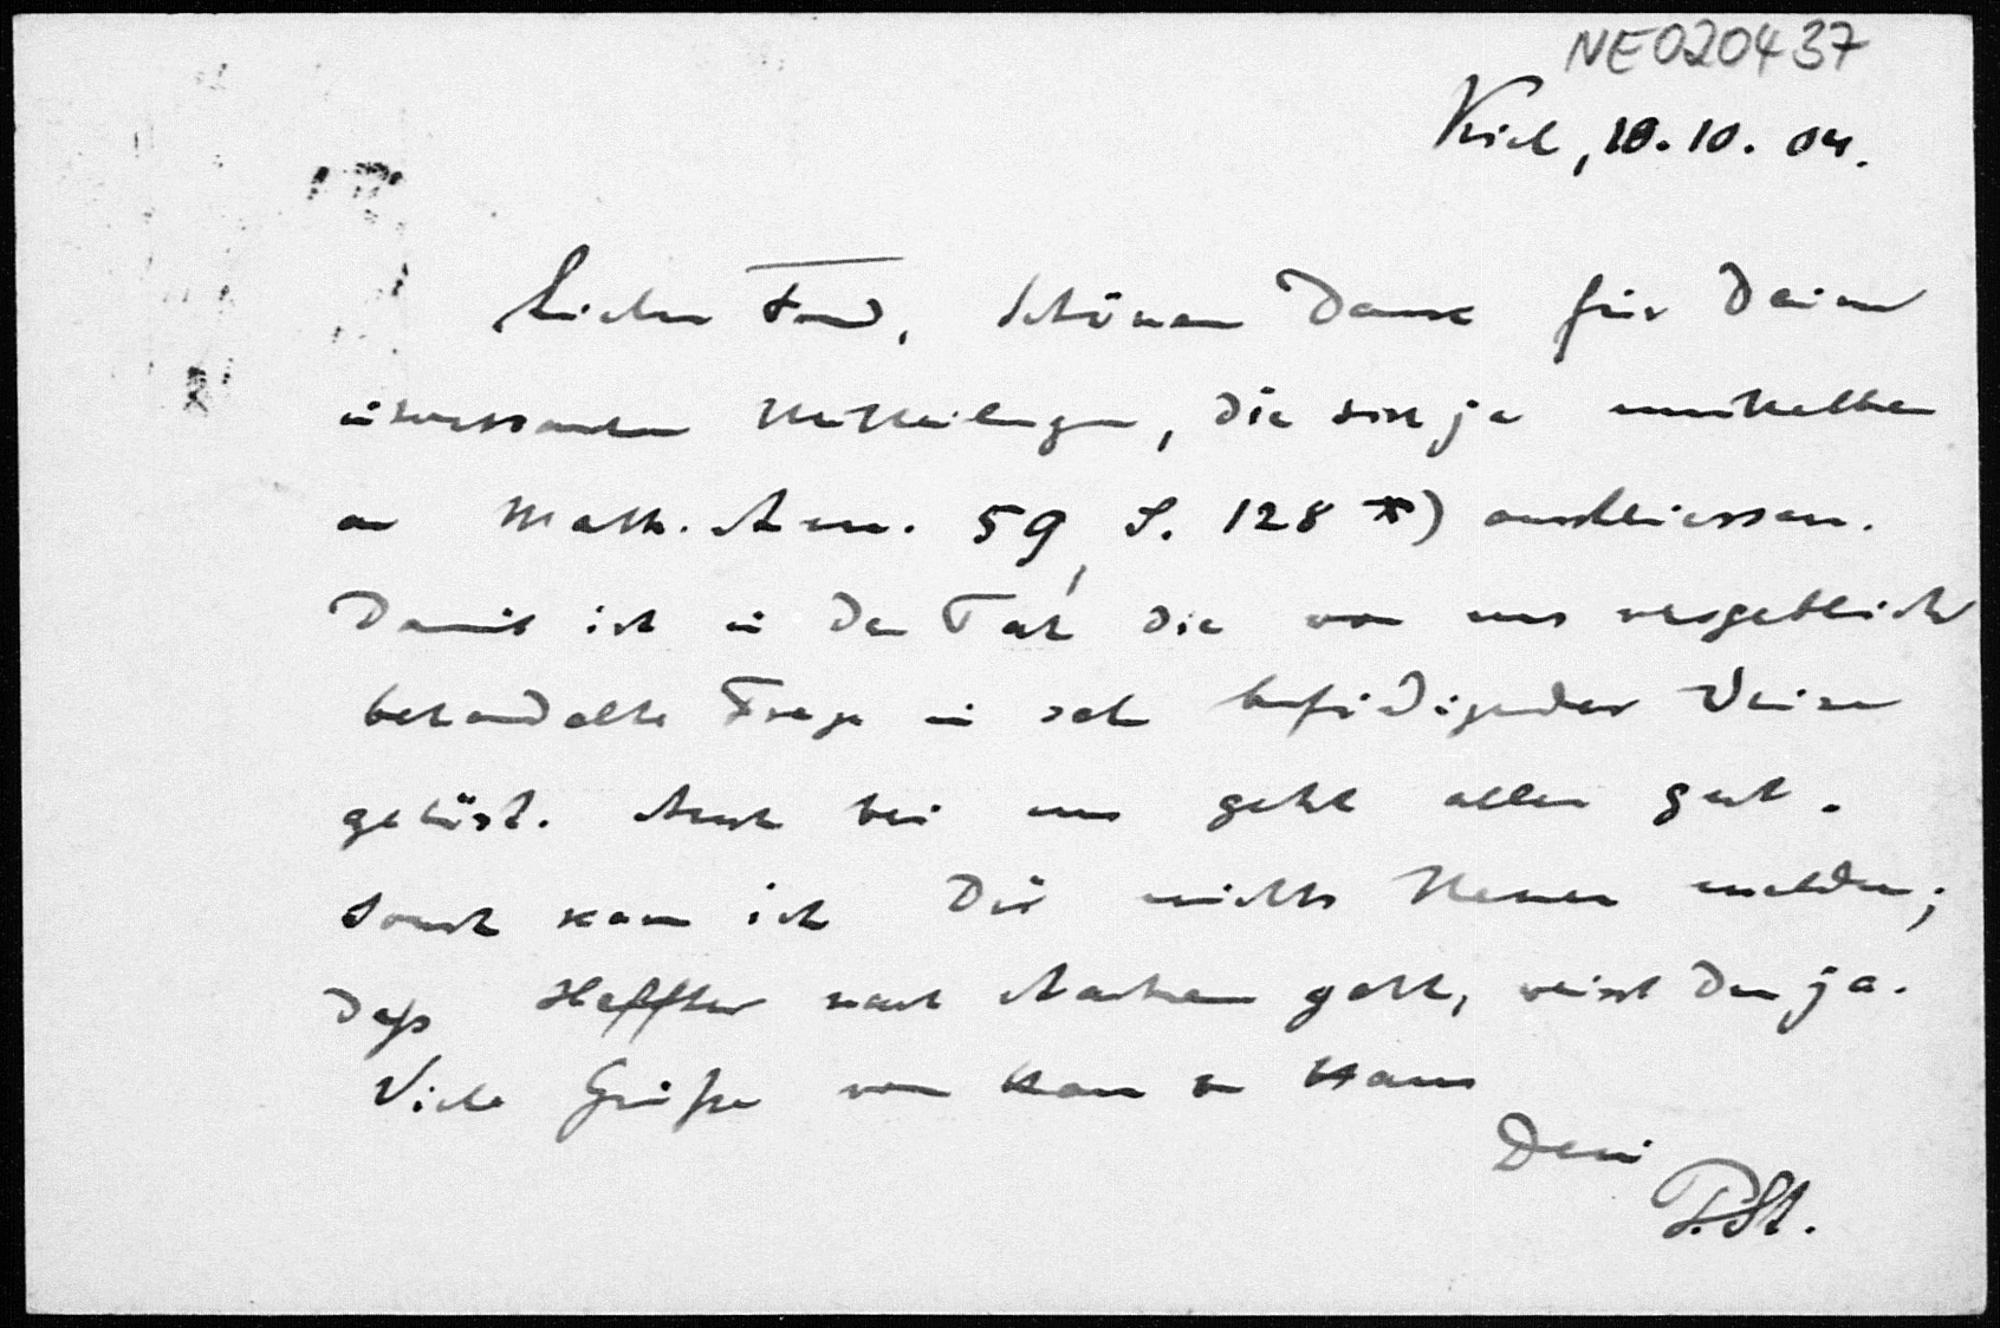 NE020437
Kiel, 18.10.04.
Lieber Freund, Schönen Dank für Deine
interessanten Mittheilungen, die sich ja unmittelbar
an Math. Ann. 59, S. 128 *) anschliessen.
Damit ist in der Tat die von uns vergeblich
behandelte Frage in sehr befriedigender Weise
gelöst. Auch bei uns geht alles gut.
Sonst kann ich Dir nichts Neues melden;
daß Heffter nach Aachen geht, weisst Du ja.
Viele Grüße von Haus zu Haus
Dein
P. St.